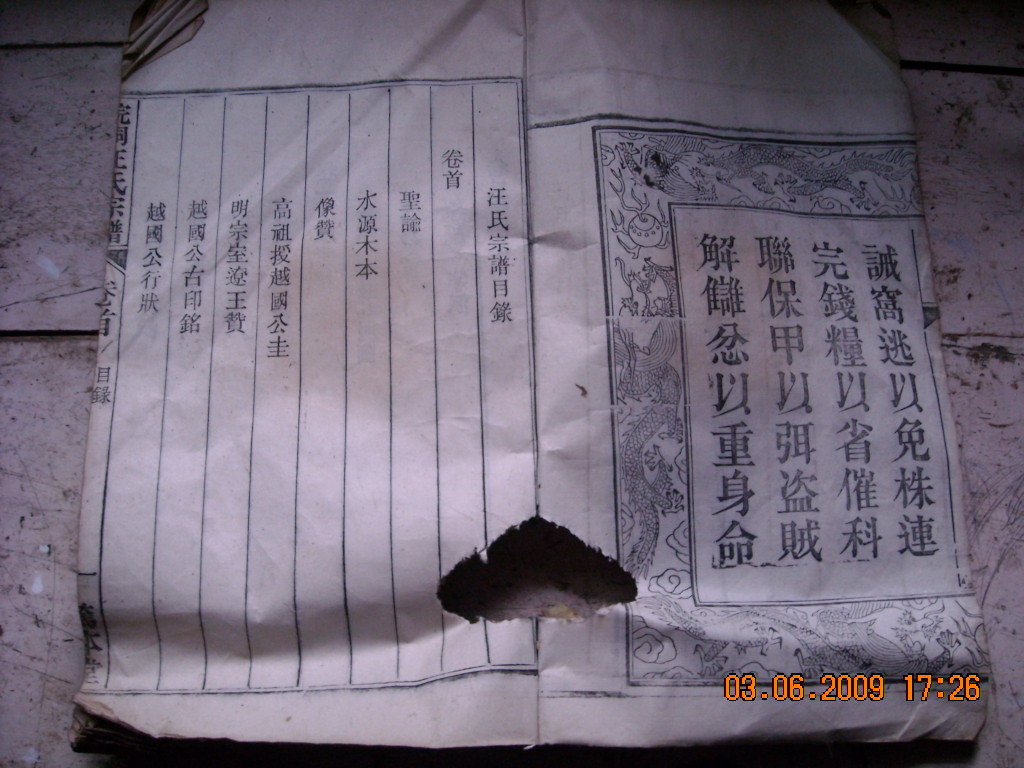 誡窩逃以免株連
完錢糧以省催科
聯保甲以弭盜賊
解讎忿以重身命
汪氏宗譜目錄
卷首
聖諭
水源木本
像贊
高祖授越國公圭
明宗室遼王贊
越國公古印銘
越國公行狀
皖桐汪氏宗譜
卷首
目錄
一
03.06.2009 17:26